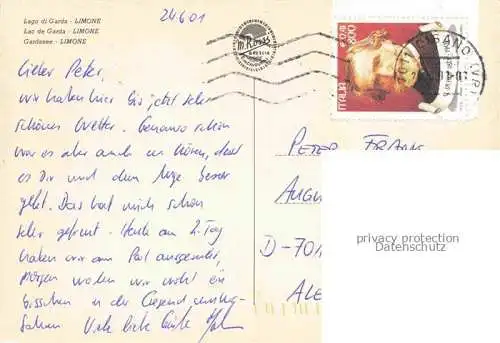 Lago di Garda - LIMONE
Lac de Garda - LIMONE
Gardasee - LIMONE
24.6.01
Lieber Peter,
wir haben hier bis jetzt sehr
schönes Wetter. Genauso schön
war es aber auch zu hören, dass
es Dir und dem Auge besser
geht. Das hat mich schon
sehr gefreut. Heute am 2. Tag
haben wir am Pool ausgeruht,
morgen wollen wir wohl ein
bisschen in der Gegend
fahren. Viele liebe Grüße
ITALIA
800
PETER FRANK
AUGU
D-701
ALE
privacy protection
Datenschutz